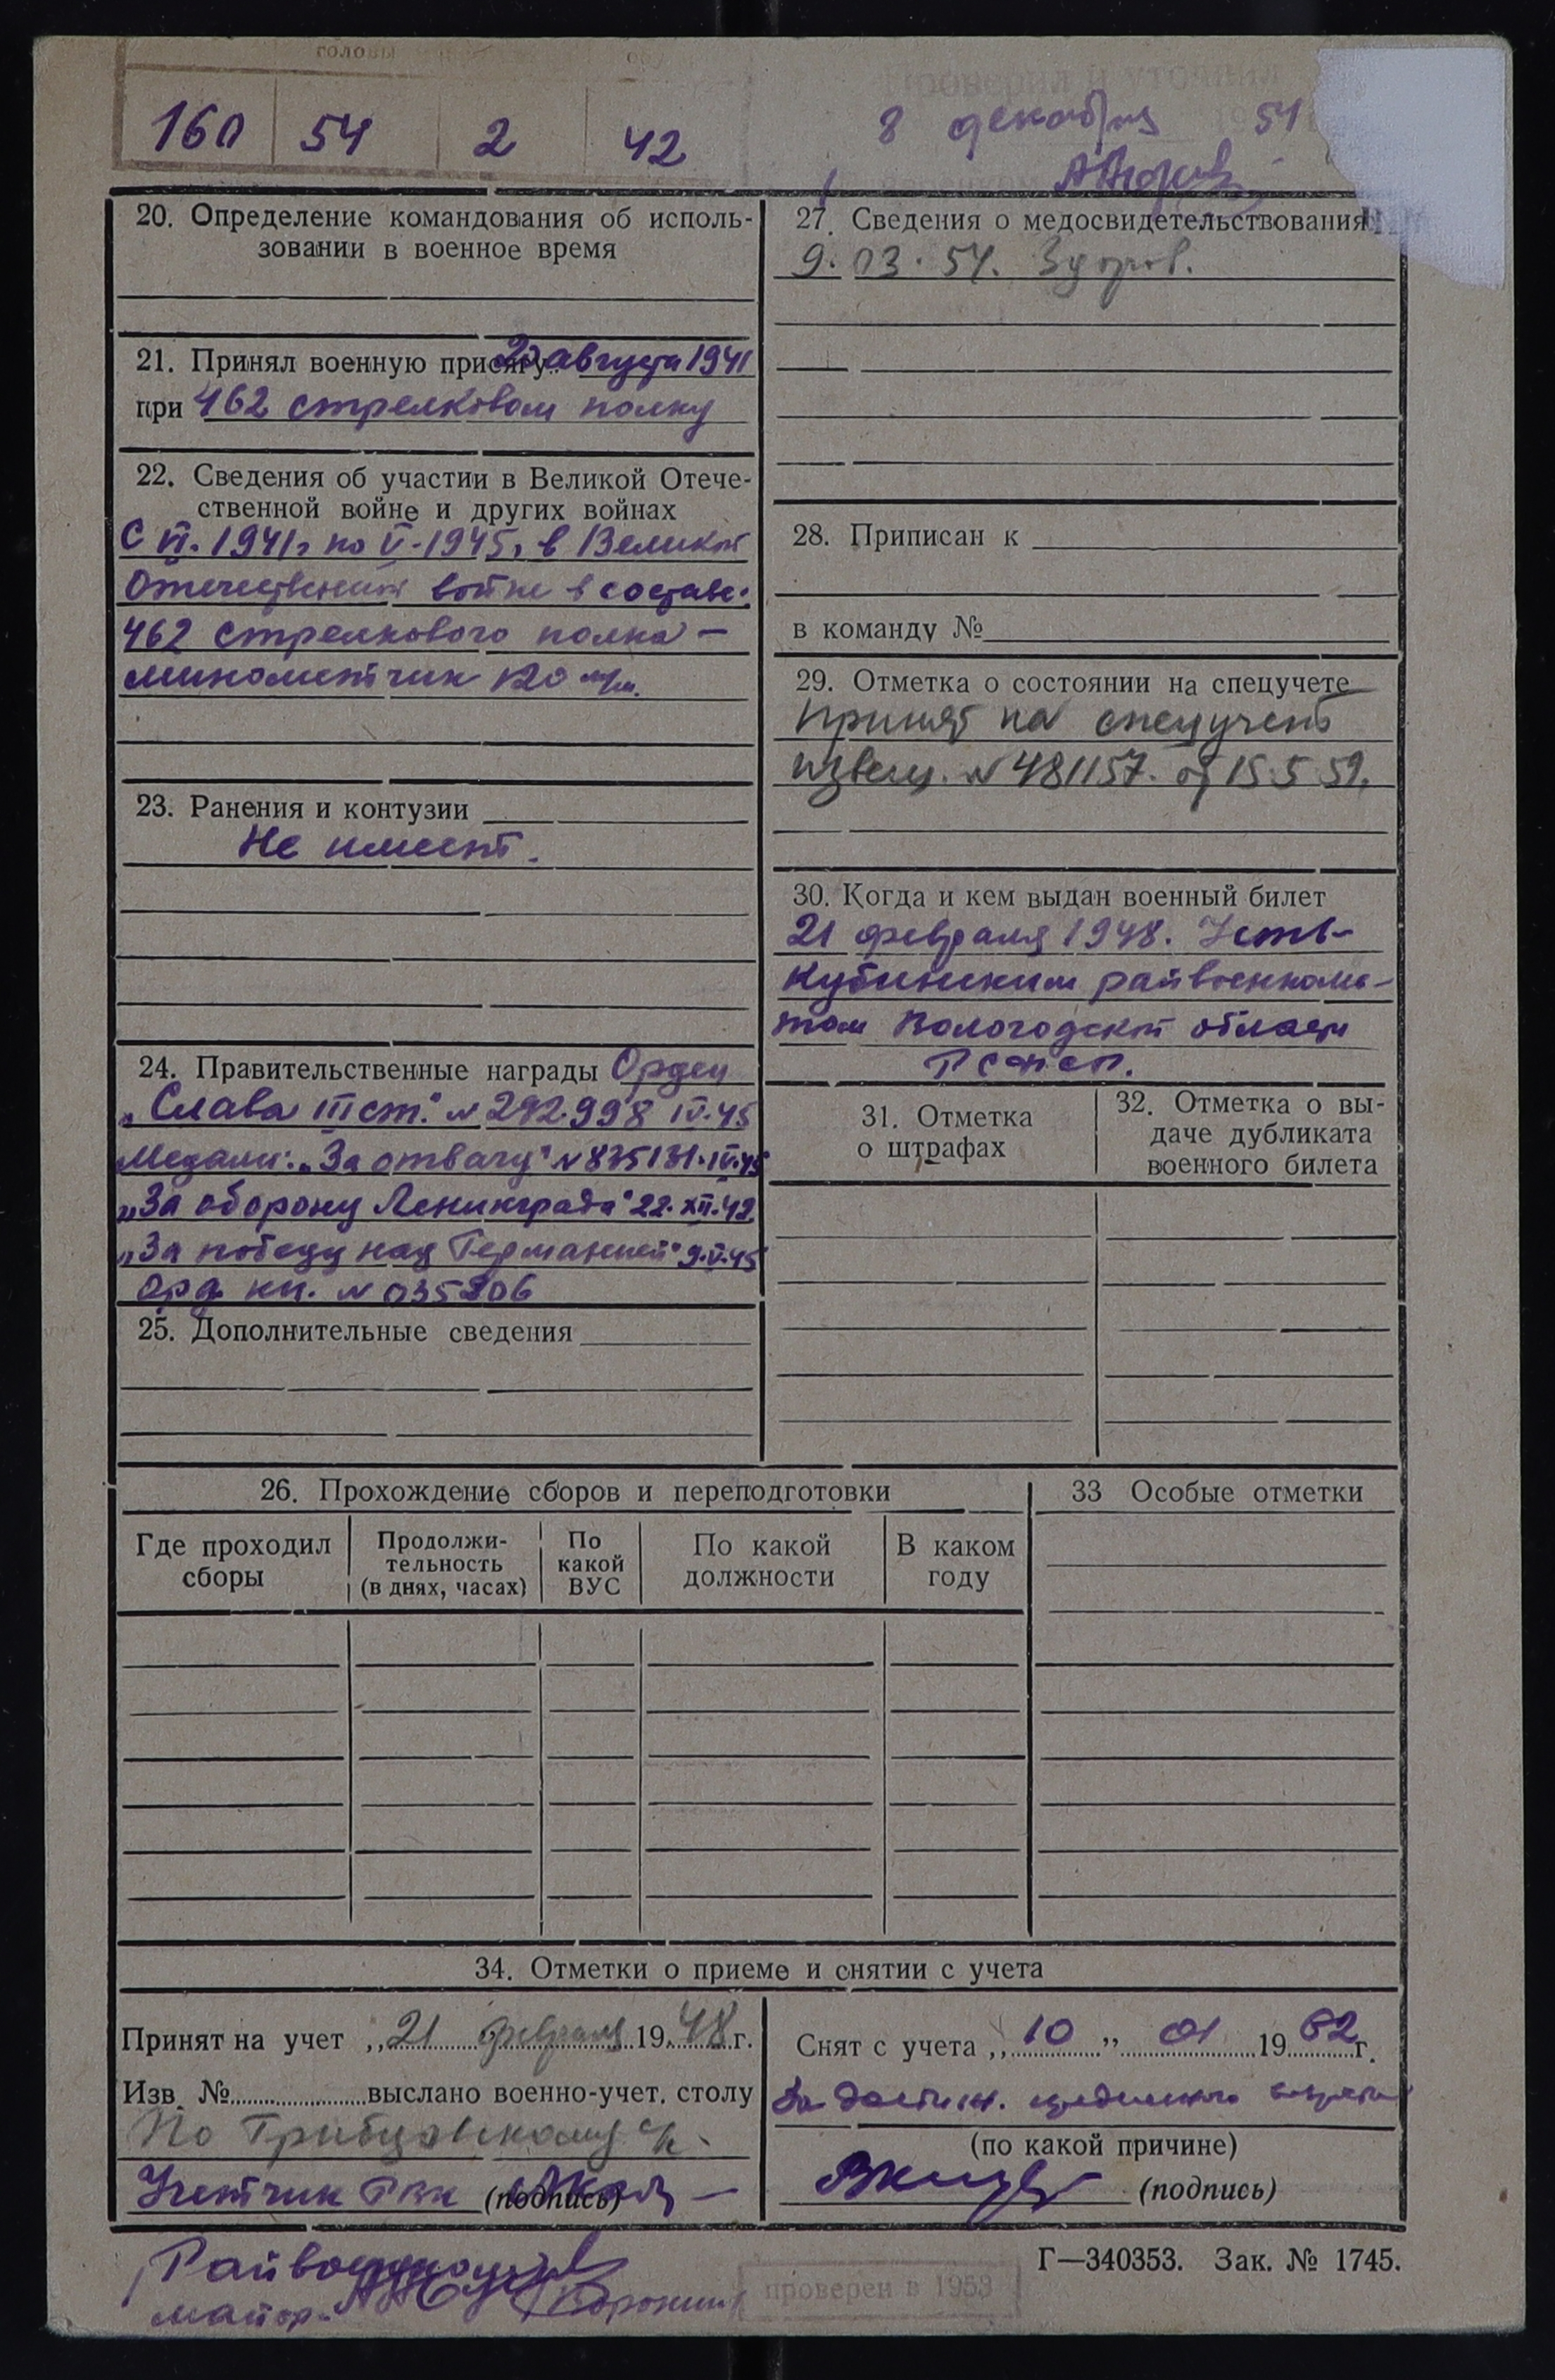 головы
160 54 2 42
Проверил и уточнил
8 декабря 54
20. Определение командования об исполь-
зовании в военное время
21. Принял военную присягу августа 1941
при 462 стрелковом полку
22. Сведения об участии в Великой Отече-
ственной войне и других войнах
С VI. 1941г по V-1945г в Великой
Отечественной войне в составе:
462 стрелкового полка –
минометчик 120 м/м.
23. Ранения и контузии
Не имеет.
24. Правительственные награды Орден
„Слава III ст." № 292998 IV.45
Медали: „За отвагу" № 835131. IV.45
„За оборону Ленинграда" 22. XII. 42
„За победу над Германией" 9.V.45
Орд. кн. № 035206
25. Дополнительные сведения
27. Сведения о медосвидетельствования
9.03.54. Здоров.
28. Приписан к
в команду №
29. Отметка о состоянии на спецучете
принят на спецучет
извещ. № 481157. от 15.5 59.
30. Когда и кем выдан военный билет
21 февраля 1948. Усть-
Кубинским райвоенкома-
том Вологодской области
РСФСР.
31. Отметка
о штрафах
32. Отметка о вы-
даче дубликата
военного билета
26. Прохождение сборов и переподготовки
Где проходил
сборы
Продолжи-
тельность
(в днях, часах)
По
какой
ВУС
По какой
должности
В каком
году
33 Особые отметки
34. Отметки о приеме и снятии с учета
Принят на учет „21 февраля 1948 г.
Изв. № выслано военно-учет. столу
По Трибцовскому с/с.
Учетчик РВК (подпись)
Снят с учета „10" 01 1962 г.
За достиж. предельного возраста
(по какой причине)
(подпись)
Райвоенком
майор
Г—340353. Зак. № 1745.
проверен в 1953